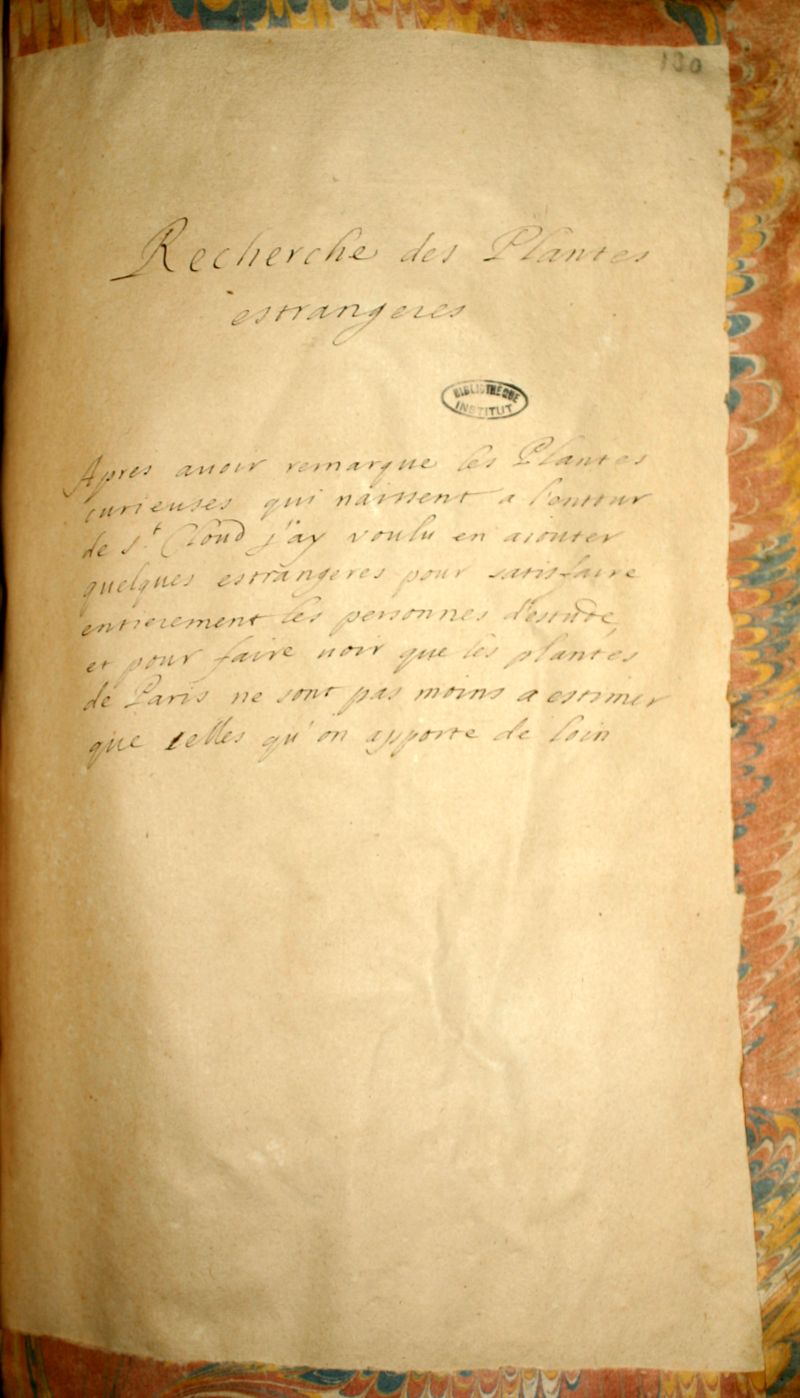 130
Recherche des Plantes
estrangeres
BIBLIOTHÈQUE
INSTITUT
Apres auoir remarque les Plantes
curieuses qui naissent a l'entour
de St Cloud j'ay voulu en aiouter
quelques estrangeres pour satisfaire
entierement les personnes d'estude
et pour faire uoir que les plantes
de Paris ne sont pas moins a estimer
que celles qu'on apporte de loin